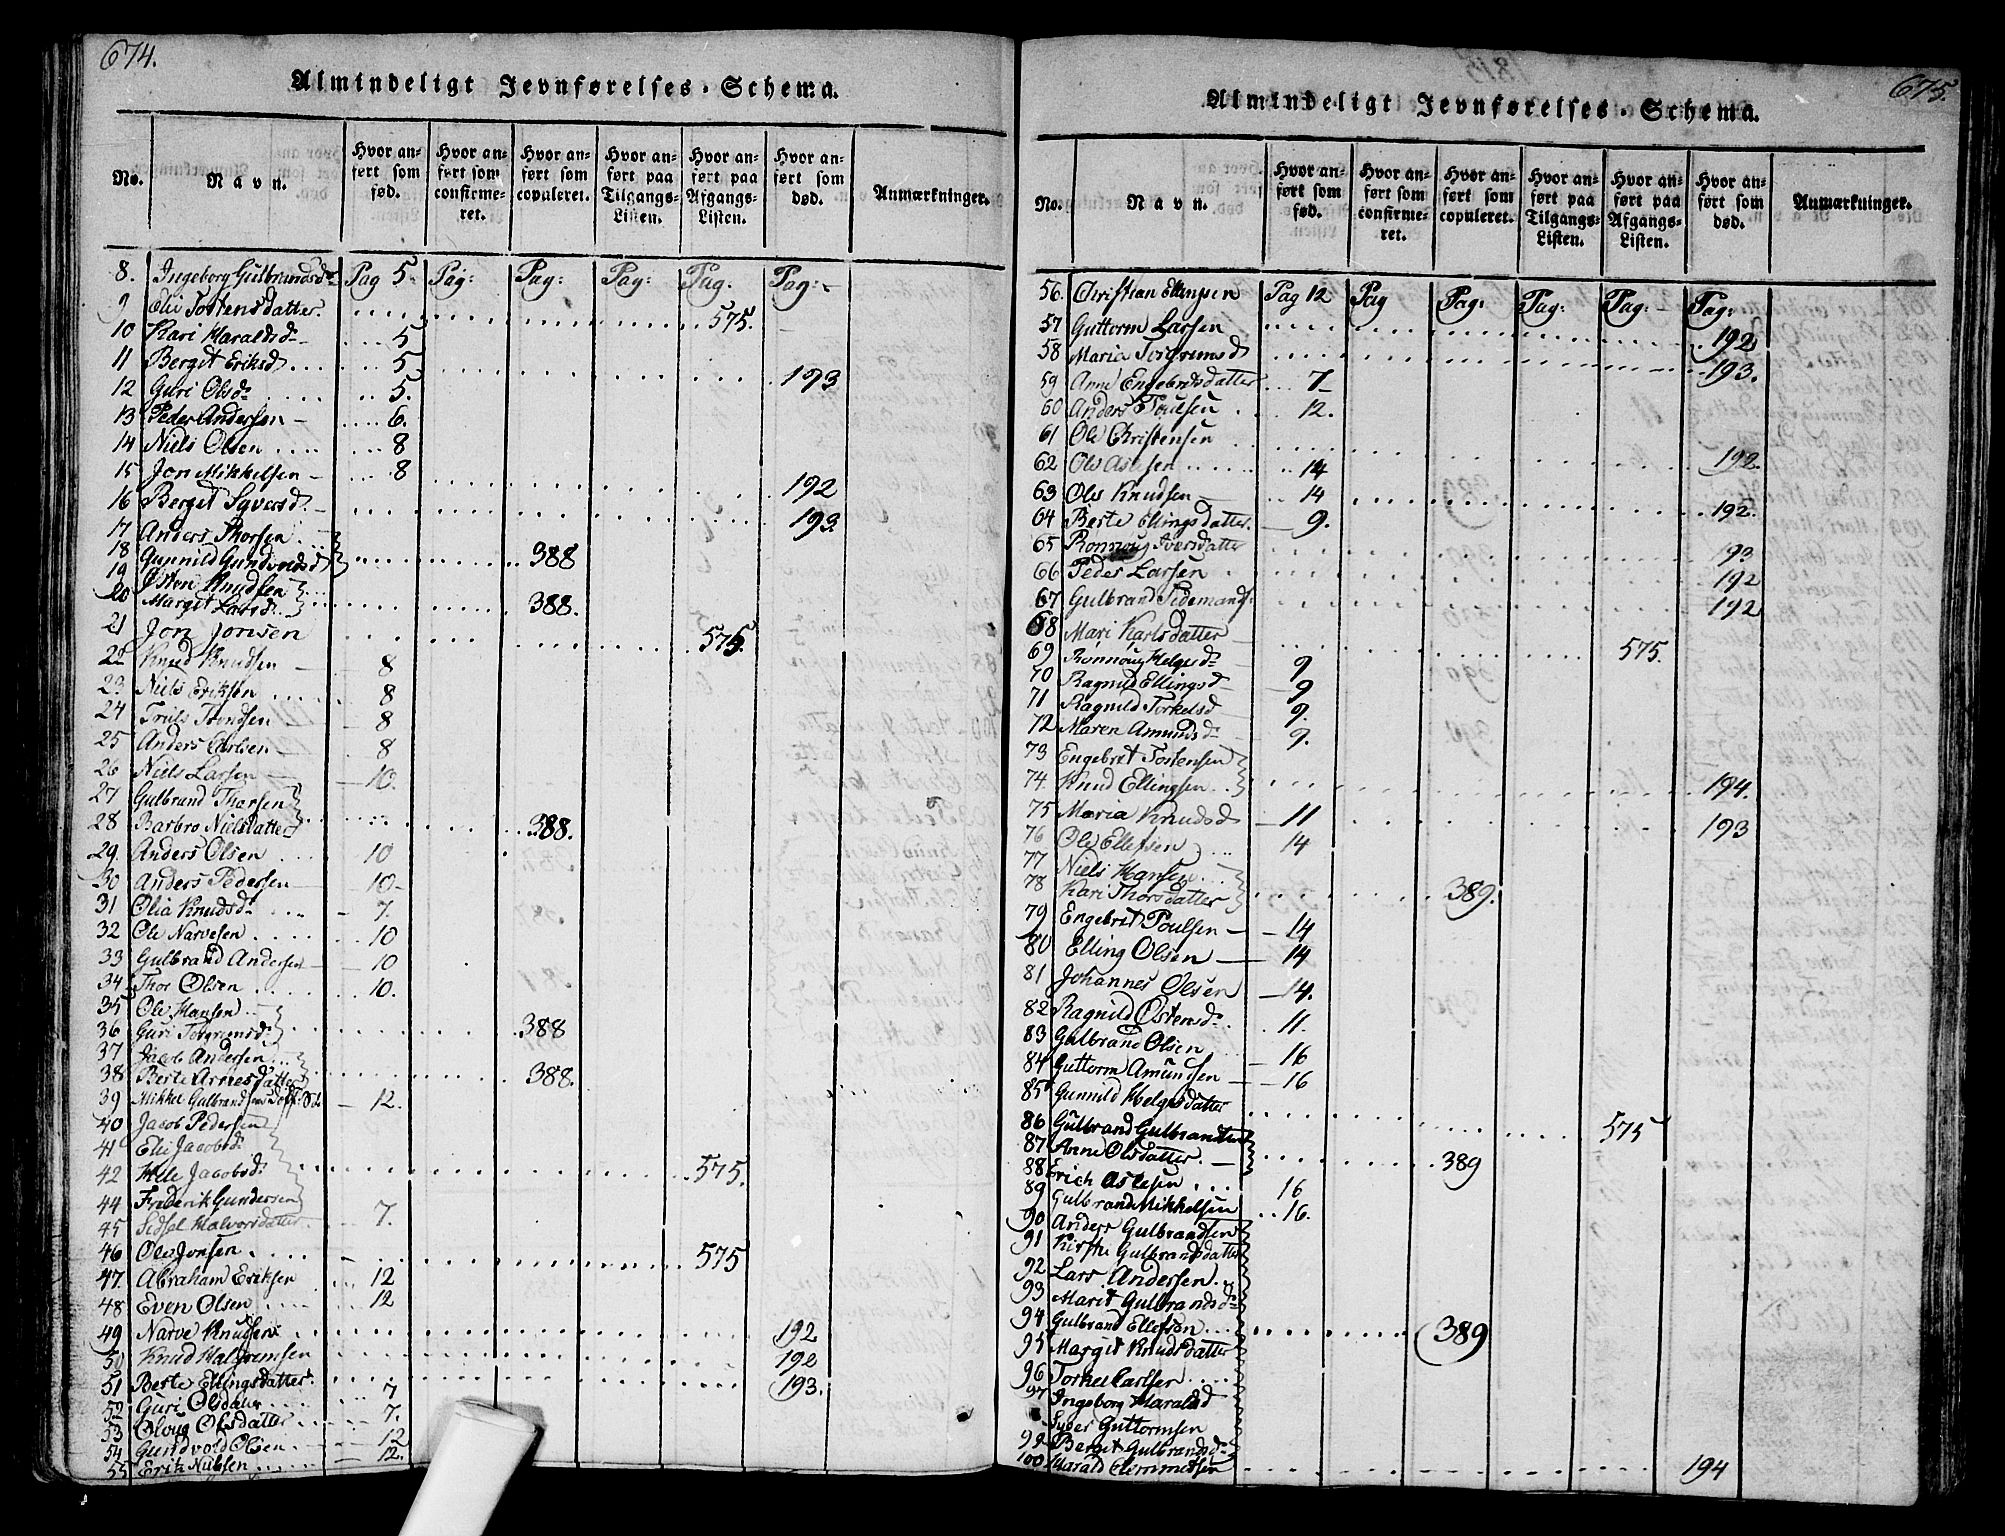 674.
Almindeligt Jevnførelses-Schema.
No. Navn. Hvor anført som fød. Hvor anført som confirmeret. Hvor anført som copuleret. Hvor anført paa Tilgangs-Listen. Hvor anført paa Afgangs-Listen. Hvor anført som død. Anmærkninger.
8. Ingeborg Gulbrandsd. Pag 5. Pag: Pag: Pag: Pag. Pag:
9 Elie Tostensdatter. 575.
10 Kari Haraldsd. 5
11 Bergit Eriksd. 5 193
12 Guri Olsd. 5.
13 Peder Andersen 6.
14 Niels Olsen 8
15 Jon Mikkelsen 8
16 Bergit Syversd. 192
193
17 Anders Thorsen
18 Gunnild Gundvoldsd 388
19 Østen Knudsen
20 Margit Larsd. 388.
21 Jon Jonsen 575.
22 Knud Knudsen 8
23 Niels Eriksen 8
24 Truls Trondsen 8
25 Anders Carlsen 8
26 Niels Larsen 10.
27 Gulbrand Thorsen
28 Barbro Nielsdatter 388.
29. Anders Olsen 10
30 Anders Pedersen 10
31 Olia Knudsd. 7.
32 Ole Narvesen 10
33 Gulbrand Andersen 10
34 Thor Olsen 10.
35 Ole Hansen
36 Guri Torgrimsd. 388
37 Jacob Andersen
38 Berte Arnesdatter 388.
39 Mikkel Gulbrandsen 12.
40 Jacob Pedersen
41 Elie Jacobsd.
42 Helle Jacobsd. 575.
44 Frederik Gundersen
45 Sidsel Halvorsdatter. 7.
46 Ole Jonsen 575
47. Abraham Eriksen 12
48 Even Olsen 12
49 Narve Knudsen 192
50 Knud Halgrimsen 192
51 Berte Ellingsdatter. 193.
52 Guri Olsdatter 7
53 Oloug Olsdatter 7.
54 Gundvold Olsen 12
55 Erik Nubsen 12.
675.
Almindeligt Jevnførelses-Schema.
No. Navn. Hvor anført som fød. Hvor anført som confirmeret. Hvor anført som copuleret. Hvor anført paa Tilgangs-Listen. Hvor anført paa Afgangs-Listen. Hvor anført som død. Anmærkninger.
56. Christian Ellingsen Pag 12 Pag Pag: Pag: Pag: Pag:
57 Guttorm Larsen 192
58 Maria Torgrimsd 193.
59 Anne Engebretsdatter 7
60 Anders Poulsen 12.
61 Ole Christensen 192.
62 Ole Aslesen 14
63 Ole Knudsen 14
192.
64 Berte Ellingsdatter. 9.
65 Ronnoug Iversdatter 193
66 Peder Larsen 192
67 Gulbrand Tidemands. 192
68 Mari Karlsdatter 575.
69 Ronnoug Helgesd. 9
70 Ragnild Ellingsd 9
71 Ragnild Torkelsd 9.
72 Maren Amundsd. 9.
73 Engebret Tostensen
74. Knud Ellingsen 194.
75 Maria Knudsd 11 193
76 Ole Ellefsen 14
77 Niels Hansen
78 Kari Thorsdatter 389.
79 Engebret Poulsen 14
80 Elling Olsen 14
81 Johannes Olsen 14.
82 Ragnild Ostensd. 11.
83 Gulbrand Olsen 16
84 Guttorm Amundsen 16
85 Gunnild Helgesdatter 575
86 Gulbrand Gulbrandsen
87 Anne Olsdatter. 389
88 Erich Aslesen 16
89 Gulbrand Mikkelsen 16.
90 Anders Gulbrandsen
91 Kirsti Gulbrandsdatter
92 Lars Andersen
93 Marit Gulbrandsd.
94 Gulbrand Ellefsen 389
95 Margit Knudsdatter
96 Torkel Carlsen
97 Ingeborg Haralsd
Syver Guttormsen
99 Bergit Gulbrandsd.
100 Harald Clemmetsen 194